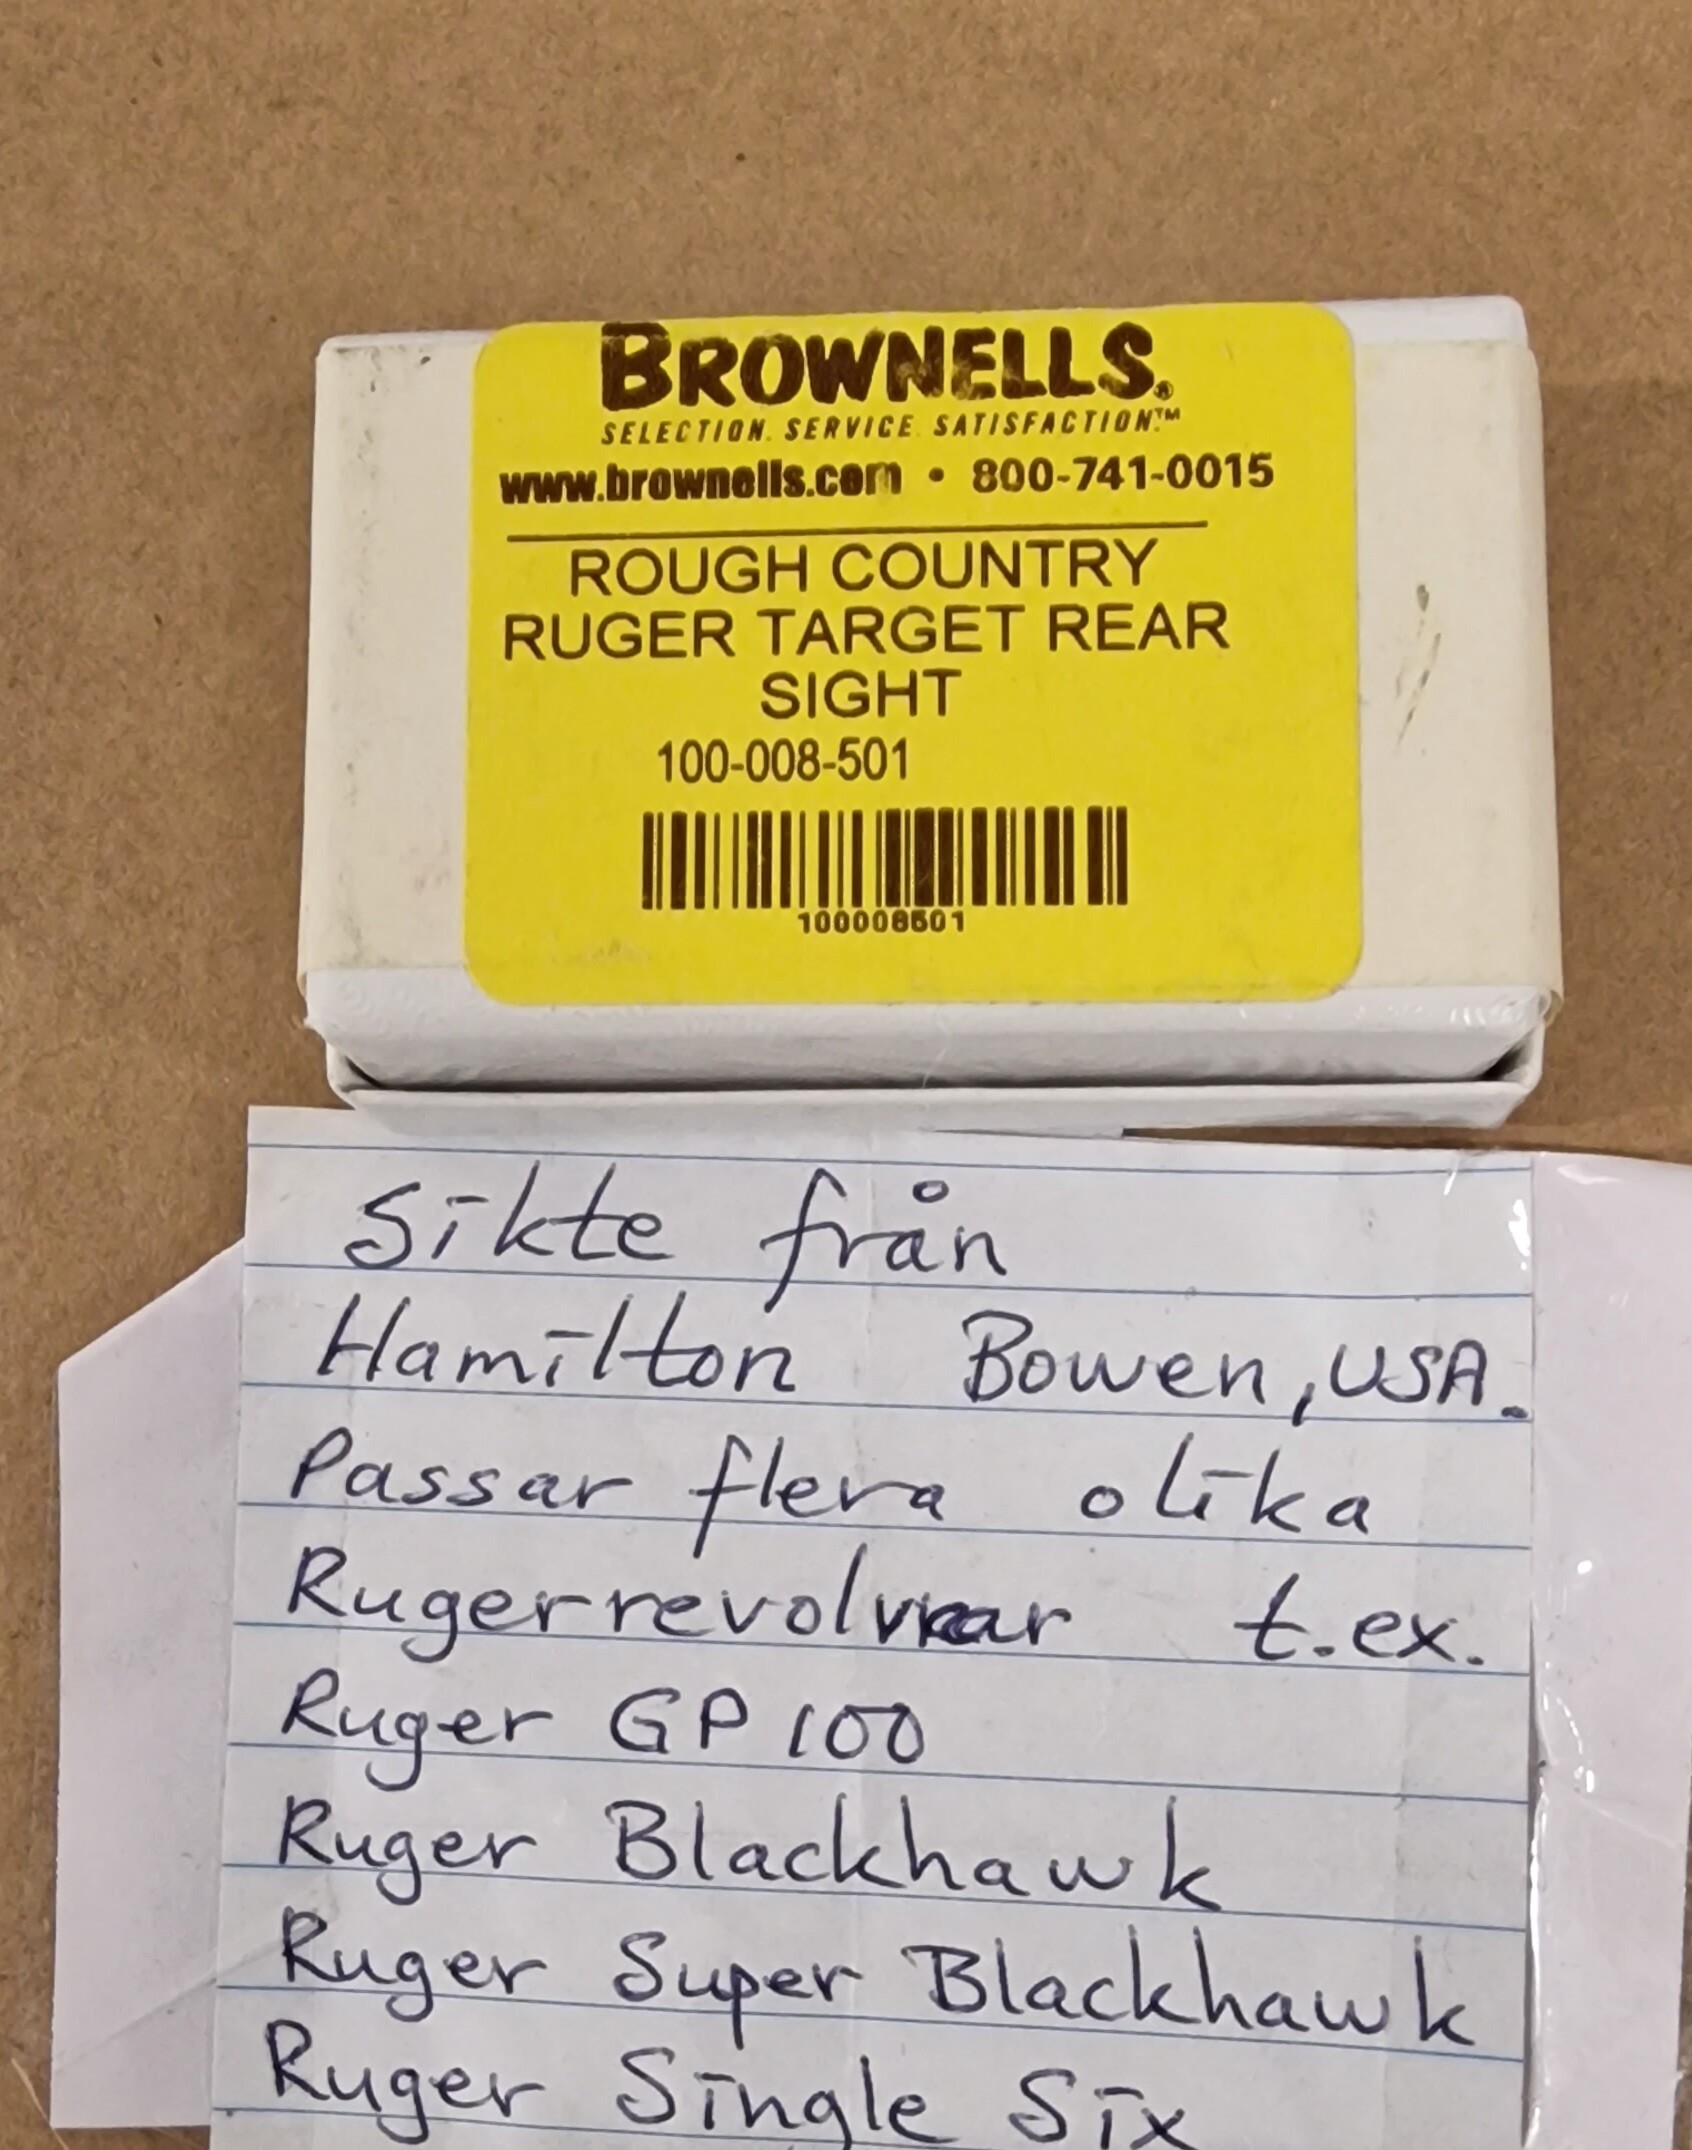 BROWNELLS®
SELECTION. SERVICE. SATISFACTION.™
www.brownells.com • 800-741-0015
ROUGH COUNTRY
RUGER TARGET REAR
SIGHT
100-008-501
100008501
Sikte från
Hamilton Bowen, USA.
Passar flera olika
Rugerrevolvrar t.ex.
Ruger GP 100
Ruger Blackhawk
Ruger Super Blackhawk
Ruger Single Six